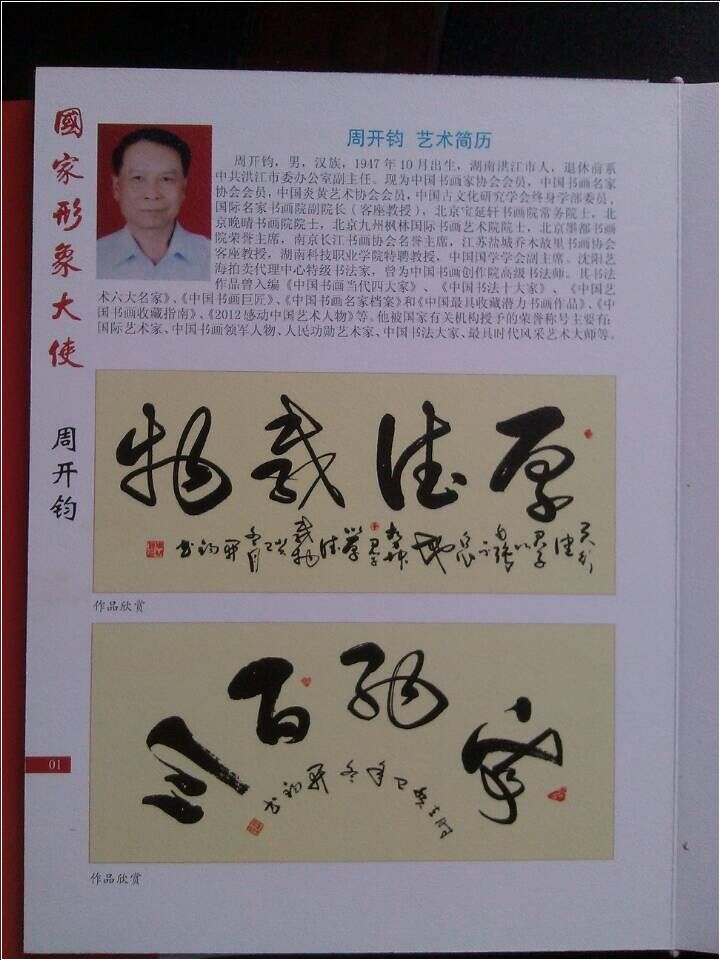 國家形象大使
周开钧
周开钧 艺术简历
周开钧，男，汉族，1947年10月出生，湖南洪江市人，退休前系
中共洪江市委办公室副主任。现为中国书画家协会会员，中国书画名家
协会会员，中国炎黄艺术协会会员，中国古文化研究学会终身学部委员，
国际名家书画院副院长（客座教授），北京宝延轩书画院常务院士，北
京晚晴书画院院士，北京九州枫林国际书画艺术院院士，北京墨都书画
院荣誉主席，南京长江书画协会名誉主席，江苏盐城乔木故里书画协会
客座教授，湖南科技职业学院特聘教授，中国国学学会副主席、沈阳艺
海拍卖代理中心特级书法家，曾为中国书画创作院高级书法师。其书法
作品曾入编《中国书画当代四大家》、《中国书法十大家》、《中国艺
术六大名家》、《中国书画巨匠》、《中国书画名家档案》和《中国最具收藏潜力书画作品》、《中
国书画收藏指南》、《2012感动中国艺术人物》等。他被国家有关机构授予的荣誉称号主要有：
国际艺术家、中国书画领军人物、人民功勋艺术家、中国书法大家、最具时代风采艺术大师等。
厚德载物
作品欣赏
01
作品欣赏